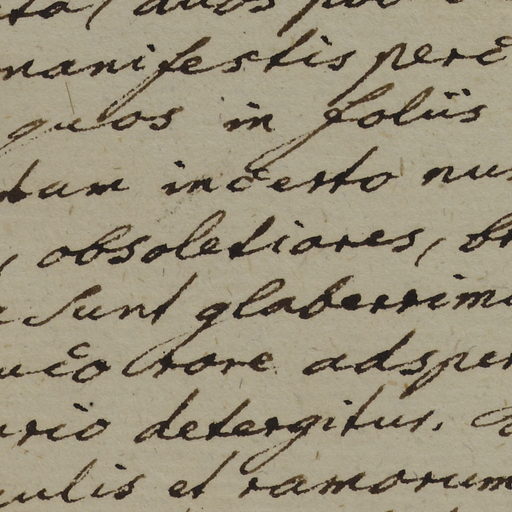 manifestis perc
quos in foliis
tum incerto nu
, obsoletiores, b
sunt glaberrima
uco rore adsper
ario detergitur.
culis et ramorum